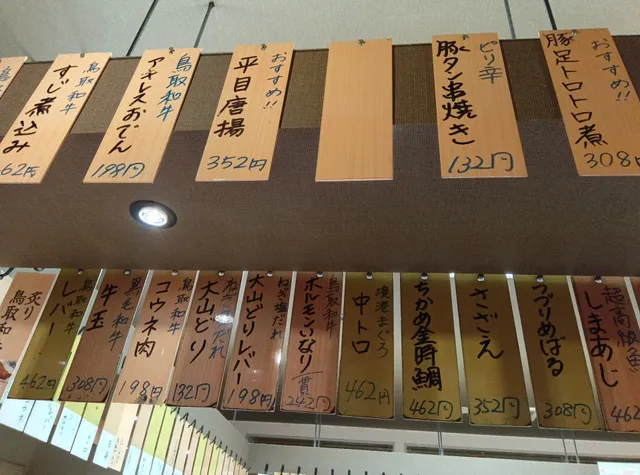 鳥取和牛
すじ煮込み
62円
鳥取和牛
アキレスおでん
198円
おすすめ!!
平目唐揚
352円
ピリ辛
豚タン串焼き
132円
おすすめ!!
豚足トロトロ煮
308円
炙り
鳥取和牛
鳥取和牛
レバー
462円
黒毛和牛
牛玉
308円
鳥取和牛
コウネ肉
198円
大山どり
132円
ねぎ塩だれ
大山どりレバー
198円
鳥取和牛
ホルモンいなり
一貫
242円
境港まぐろ
中トロ
462円
ちかめ金時鯛
462円
さざえ
352円
つづりめばる
308円
超高級魚
しまあじ
462